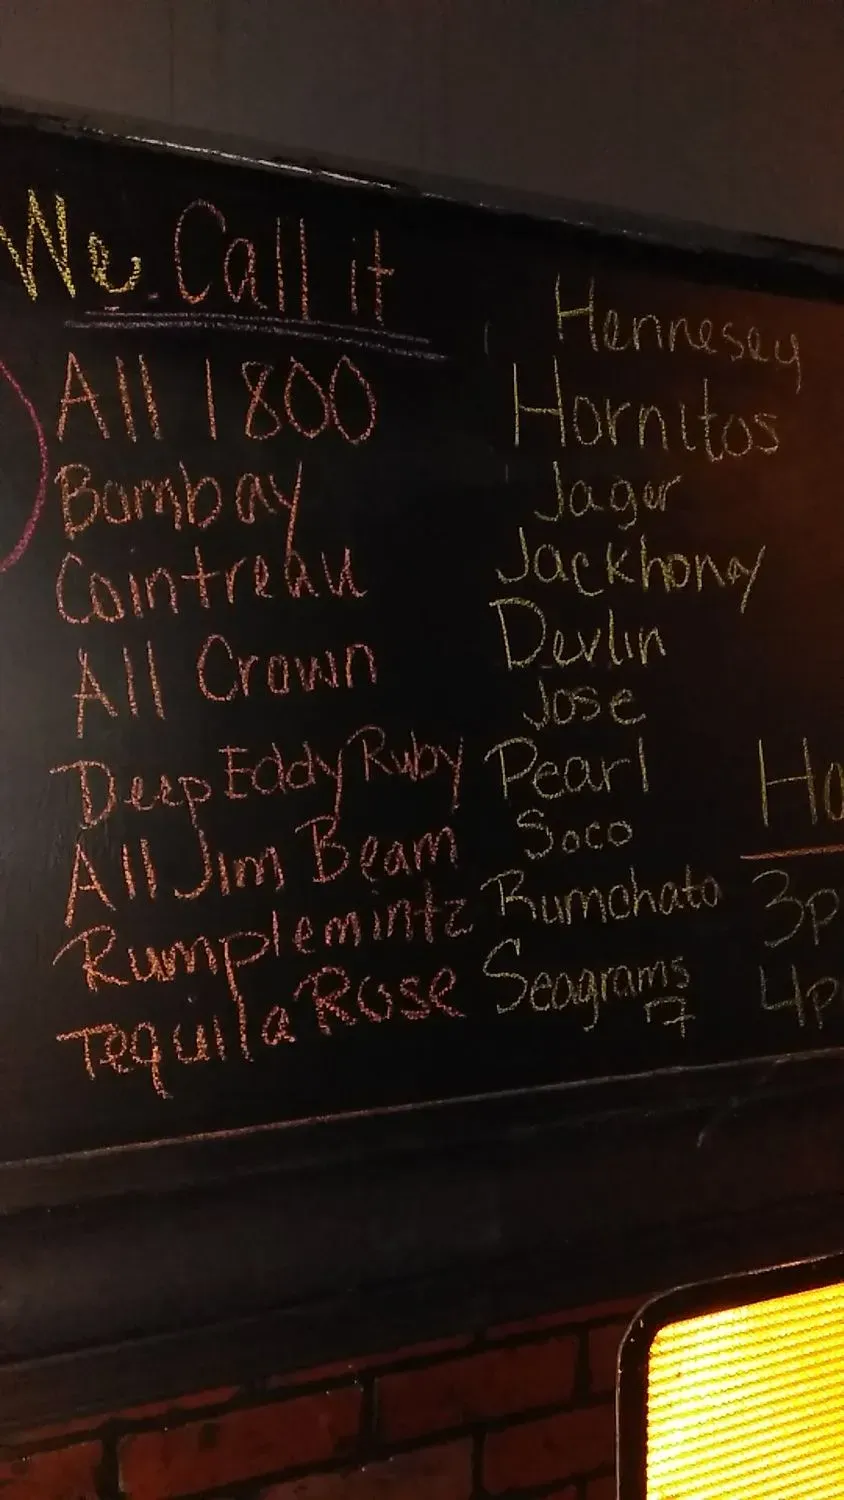 We Call it
All 1800
Bombay
Cointreau
All Crown
Deep Eddy Ruby
All Jim Beam
Rumplemintz
Tequila Rose
Hennesey
Hornitos
Jager
Jackhoney
Devlin
Jose
Pearl
Soco
Rumchata
Seagrams
7
Ha
3p
4p